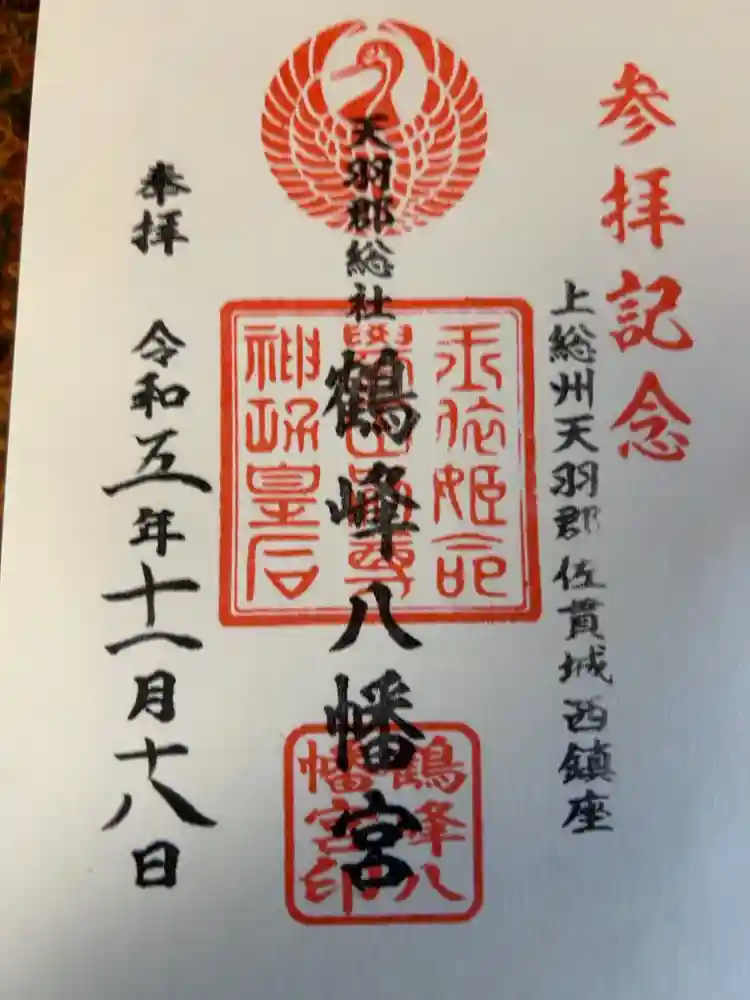 参拝記念
上総州天羽郡佐貫城西鎮座
天羽郡総社
鶴峰八幡宮
玉依姫命
誉田別尊
神功皇后
鶴峰八
幡宮印
奉拝 令和五年十一月十八日